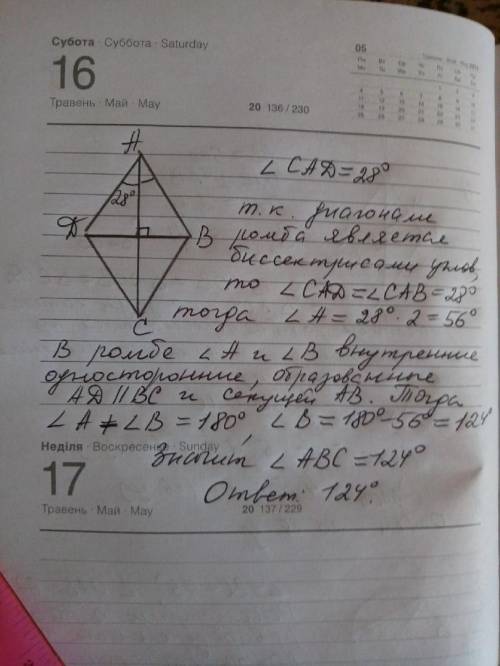 Субота · Суббота · Saturday
16
Травень · Май · May
20 136 / 230
05
A
28°
D
B
C
∠CAD = 28°
т.к. диагонали
ромба является
биссектрисами углов,
то ∠CAD = ∠CAB = 28°
тогда ∠A = 28° · 2 = 56°
В ромбе ∠A и ∠B внутренние
односторонние, образованные
AD || BC и секущей AB. Тогда
∠A + ∠B = 180°, ∠B = 180° - 56° = 124
Значит ∠ABC = 124°
Ответ: 124°.
Неділя · Воскресенье · Sunday
17
Травень · Май · May
20 137 / 229